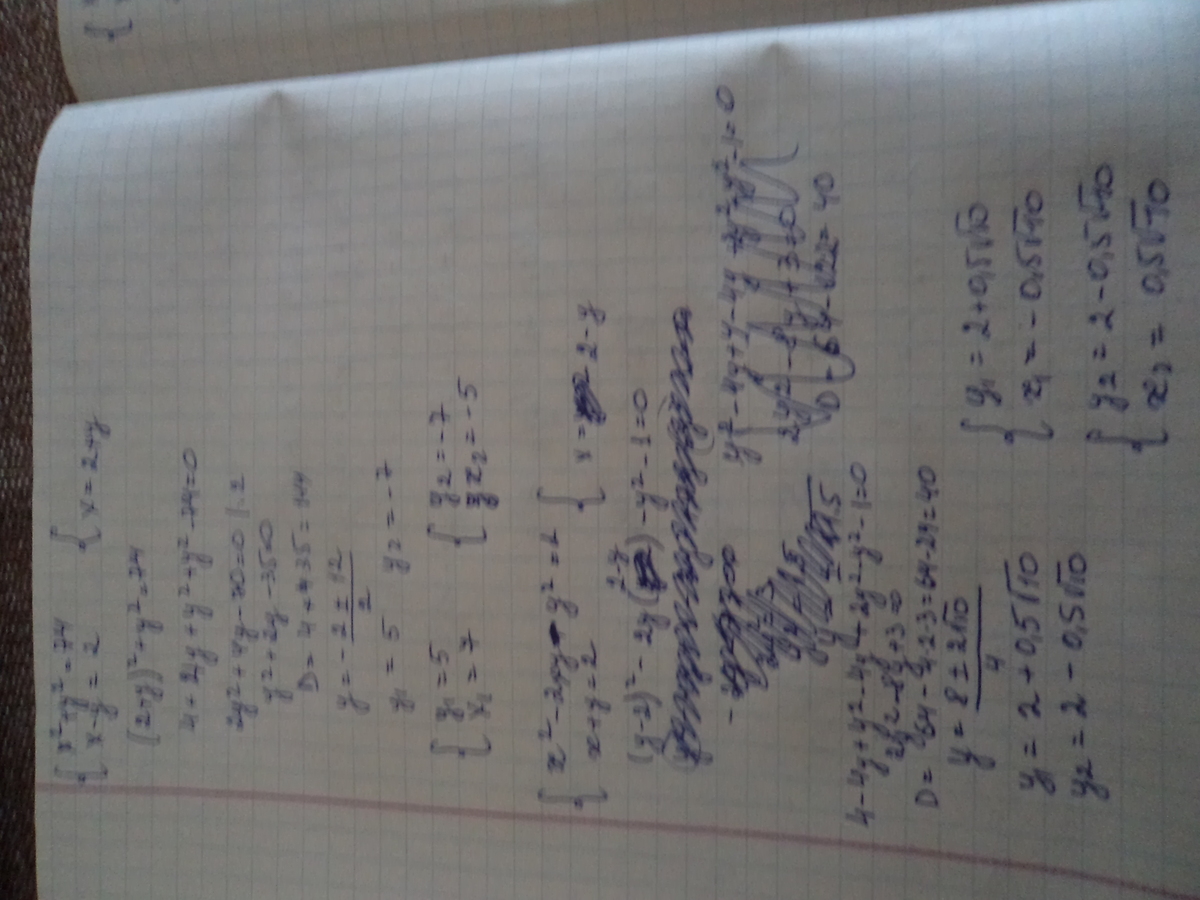 { x²+y²=74
x-y=2 { x=2+y
(2+y)²+y²=74
4+2y+y²+y²-74=0
2y²+4y-70=0 |:2
y²+2y-35=0
D=4+4·35=144
y=-2±12/2
y₁=5 y₂=-7
{ y₁=5
x₁=7 { y₂=-7
x₂=-5
{ x²-2xy-y²=1
x+y=2 { x=2-y
(y-2)²-2y(2-y)-y²-1=0
4-4y+y²-4y+2y²-y²-1=0
2y²-8y+3=0
D=64-4·2·3=64-24=40
y=8±2√10/4
y₁=2+0,5√10
y₂=2-0,5√10
{ y₁=2+0,5√10
x₁=-0,5√10
{ y₂=2-0,5√10
x₂=0,5√10